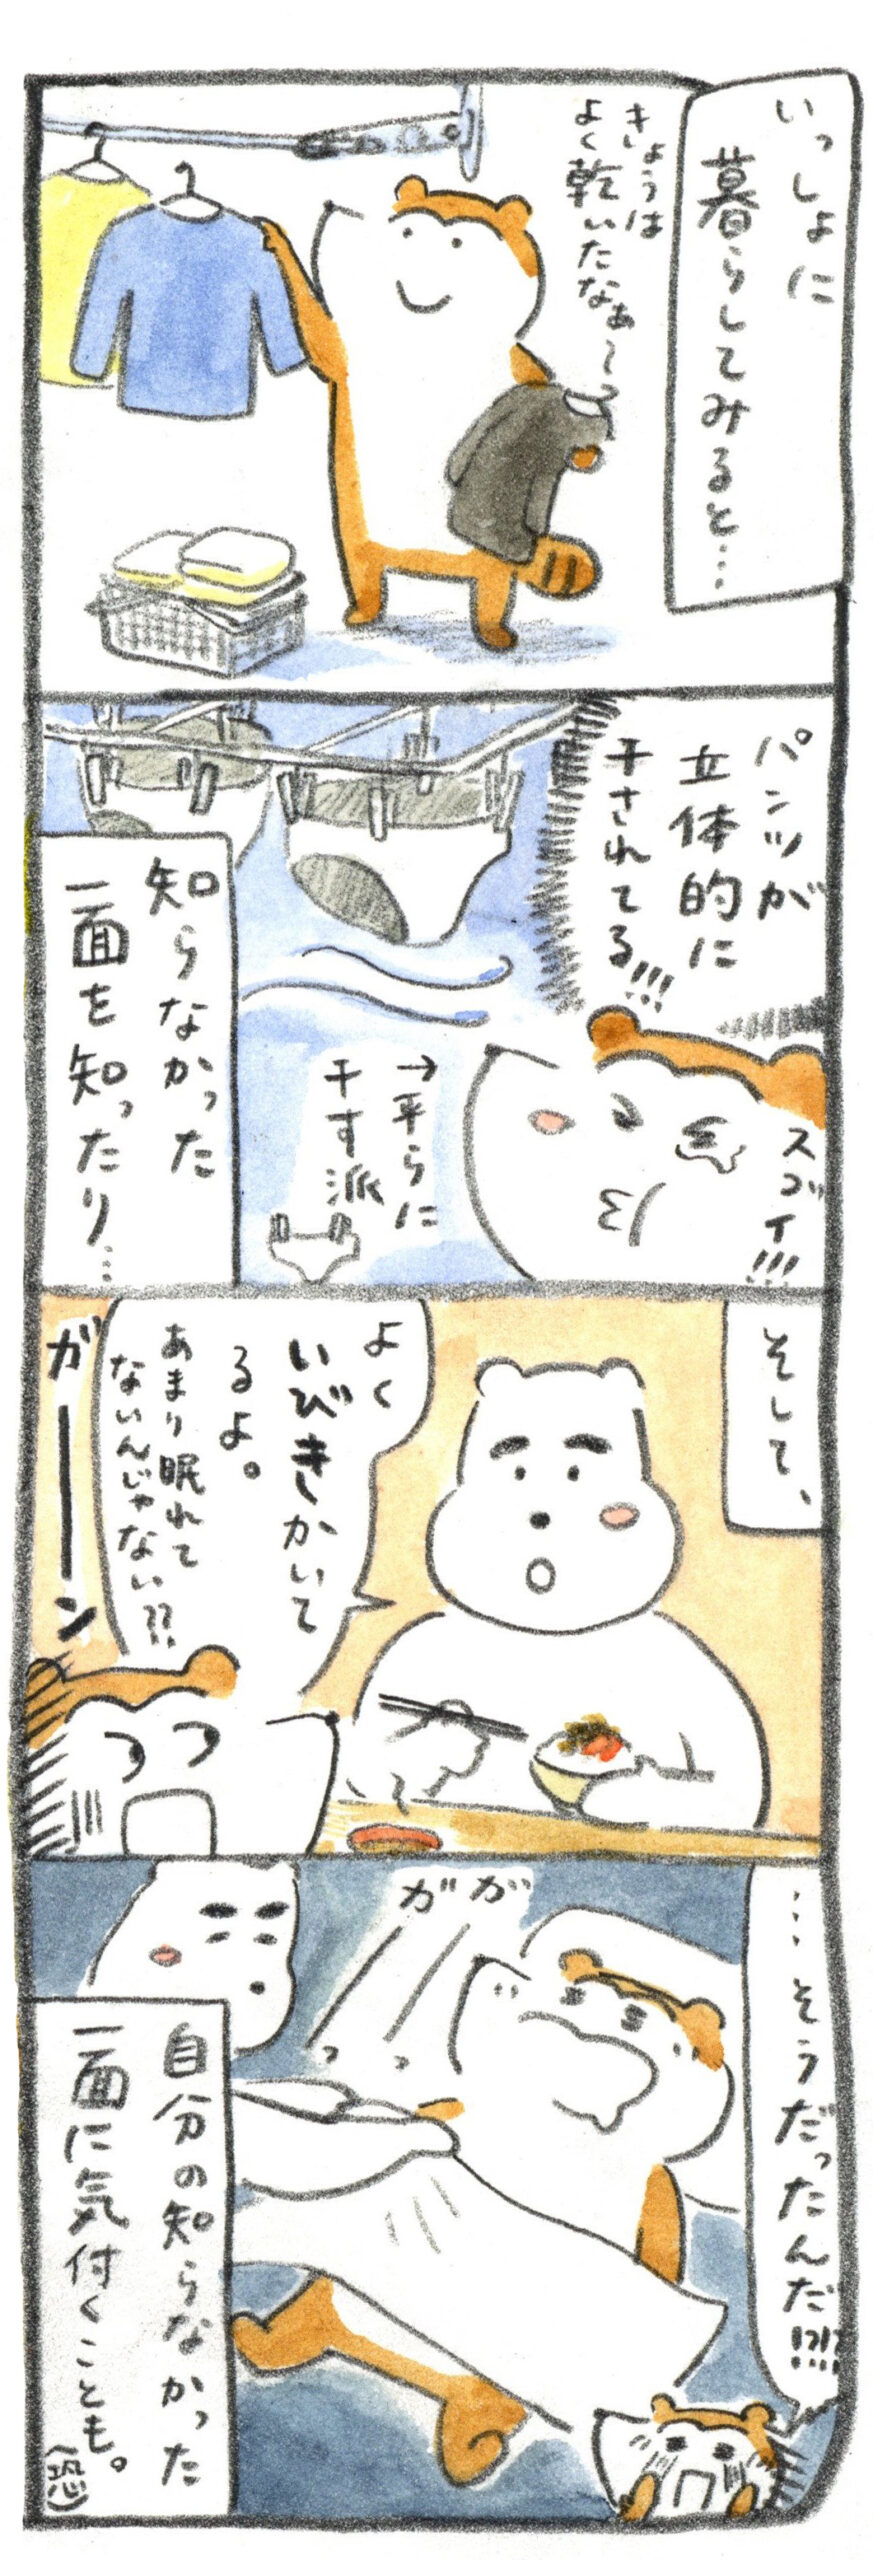 いっしょに
暮らしてみると…
きょうは
よく乾いたなぁ〜っ
パンツが
立体的に
干されてる!!!
スゴイ!!!
→平らに
干す派
知らなかった
一面を知ったり…
そして、
よく
いびきかいて
るよ。
あまり眠れて
ないんじゃない??
ガーーン
…そうだったんだ!?!!
ガガ
っっ
自分の知らなかった
一面に気付くことも。
(恐)